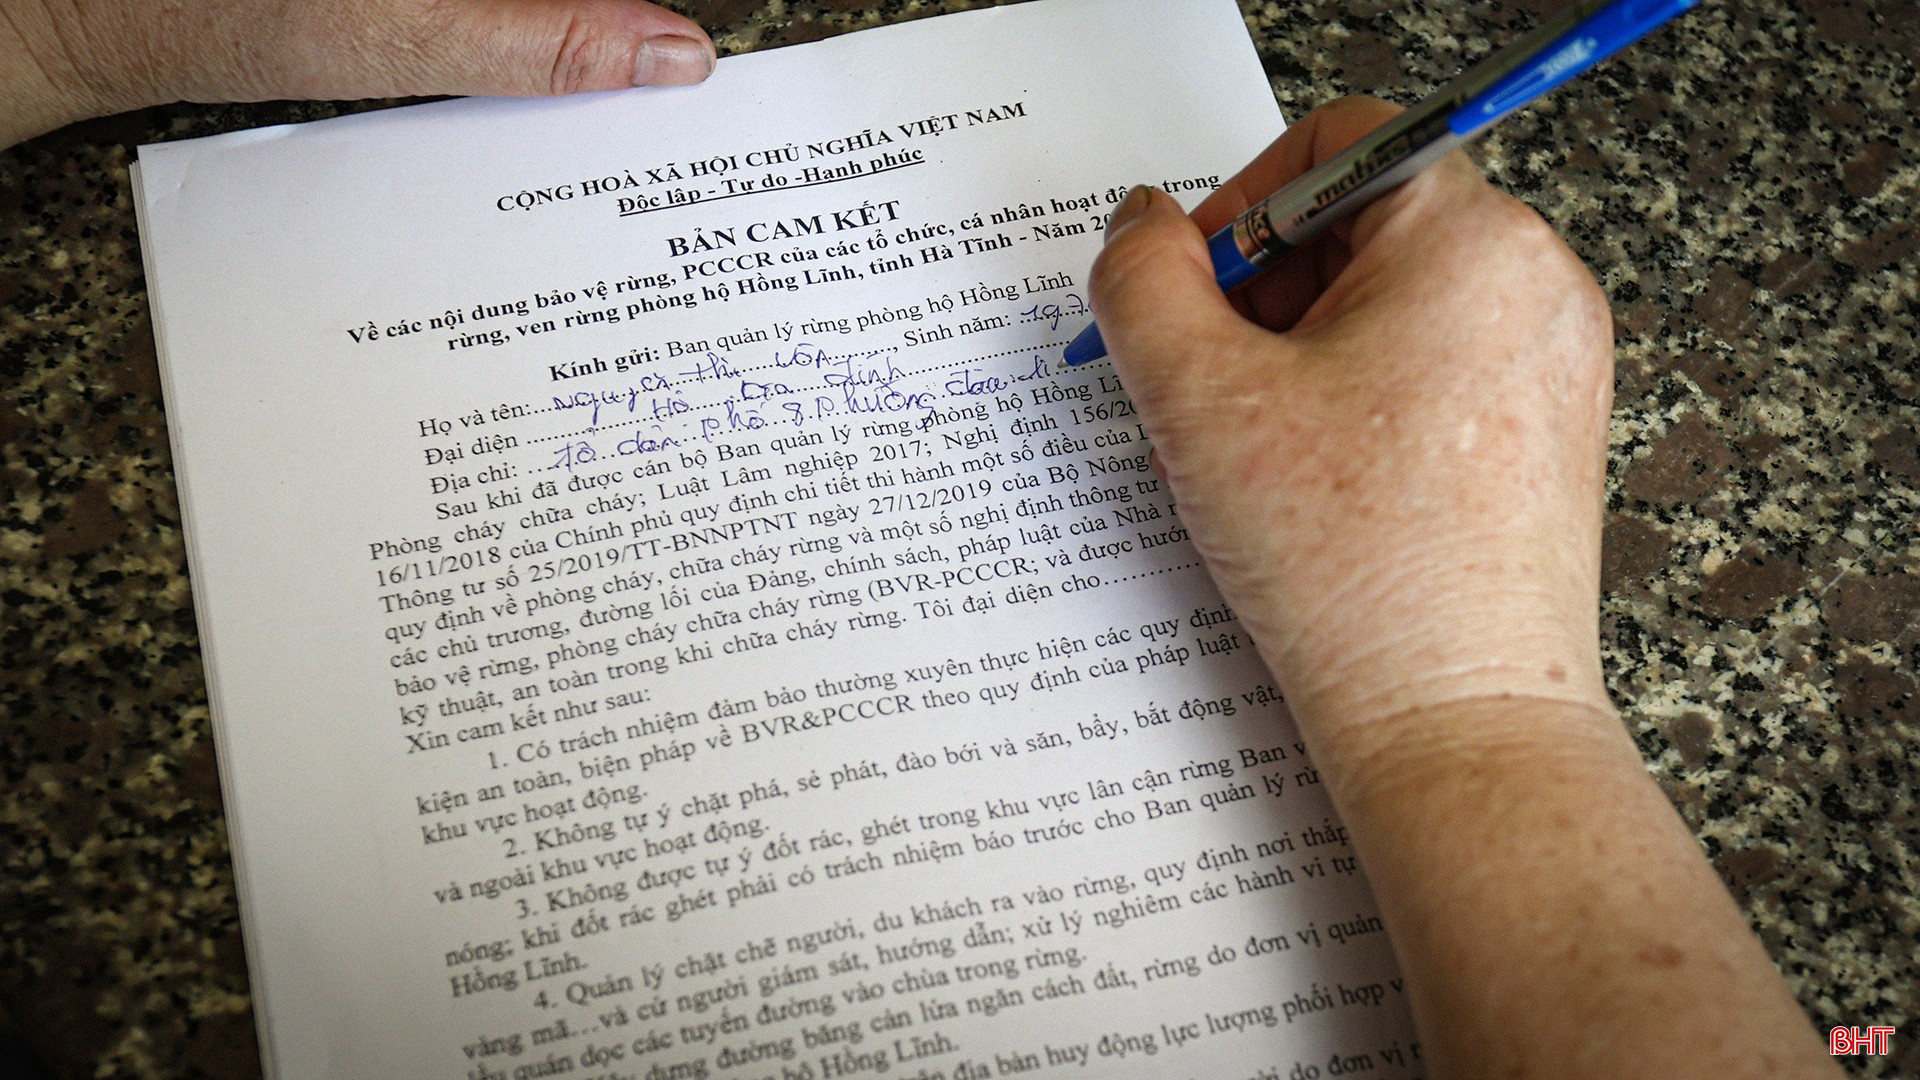 CỘNG HOÀ XÃ HỘI CHỦ NGHĨA VIỆT NAM
Độc lập - Tự do -Hạnh phúc
BẢN CAM KẾT
Về các nội dung bảo vệ rừng, PCCCR của các tổ chức, cá nhân hoạt động trong
rừng, ven rừng phòng hộ Hồng Lĩnh, tỉnh Hà Tĩnh - Năm 20
Kính gửi: Ban quản lý rừng phòng hộ Hồng Lĩnh
Họ và tên:...Nguyễn Thị Vân..........., Sinh năm: ...197
Đại diện ..........Hộ Gia đình
Địa chỉ: ....Tổ dân phố 8. Phường Đậu Li
Sau khi đã được cán bộ Ban quản lý rừng phòng hộ Hồng Lĩ
Phòng cháy chữa cháy; Luật Lâm nghiệp 2017; Nghị định 156/20
16/11/2018 của Chính phủ quy định chi tiết thi hành một số điều của L
Thông tư số 25/2019/TT-BNNPTNT ngày 27/12/2019 của Bộ Nông
quy định về phòng cháy, chữa cháy rừng và một số nghị định thông tư
các chủ trương, đường lối của Đảng, chính sách, pháp luật của Nhà n
bảo vệ rừng, phòng cháy chữa cháy rừng (BVR-PCCCR; và được hướ
kỹ thuật, an toàn trong khi chữa cháy rừng. Tôi đại diện cho............
Xin cam kết như sau:
1. Có trách nhiệm đảm bảo thường xuyên thực hiện các quy định
kiện an toàn, biện pháp về BVR&PCCCR theo quy định của pháp luật
khu vực hoạt động.
2. Không tự ý chặt phá, sẻ phát, đào bới và săn, bẩy, bắt động vật,
và ngoài khu vực hoạt động.
3. Không được tự ý đốt rác, ghét trong khu vực lân cận rừng Ban v
nóng; khi đốt rác ghét phải có trách nhiệm báo trước cho Ban quản lý rừ
Hồng Lĩnh.
4. Quản lý chặt chẽ người, du khách ra vào rừng, quy định nơi thắp
vàng mã...và cử người giám sát, hướng dẫn; xử lý nghiêm các hành vi tự
quán dọc các tuyến đường vào chùa trong rừng.
dựng đường băng cản lửa ngăn cách đất, rừng do đơn vị quản
hộ Hồng Lĩnh.
địa bàn huy động lực lượng phối hợp v
do đơn vị
matiks
BHT